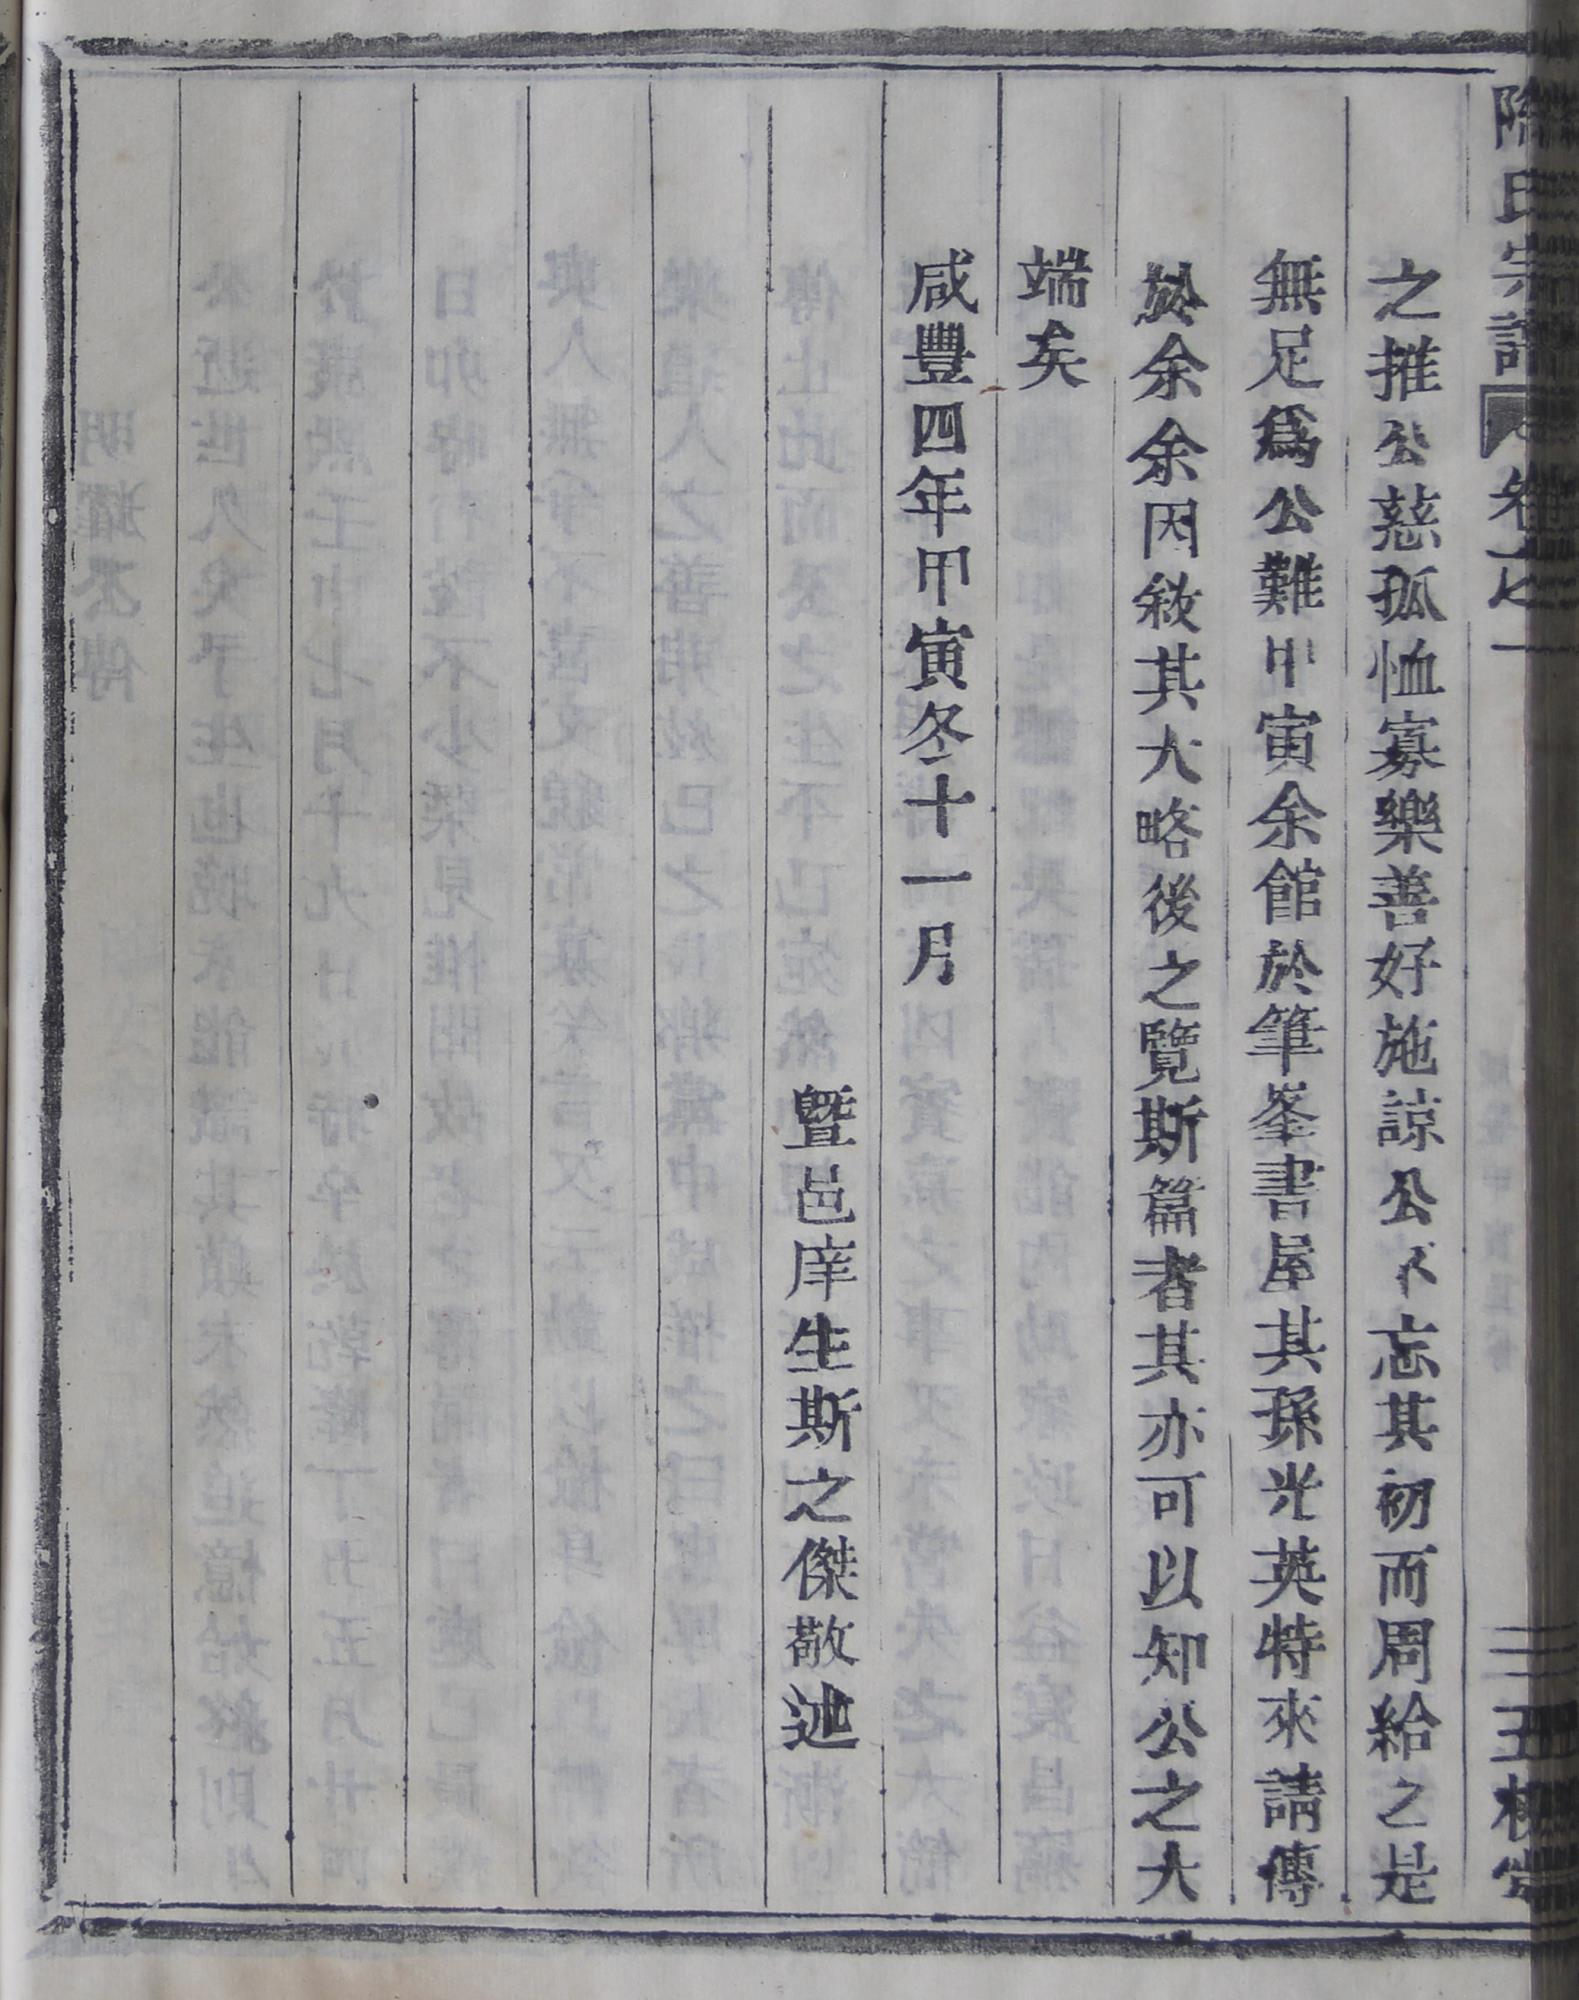 之推公慈孤恤寡樂善好施諒公不忘其初而周給之是
無足爲公難甲寅余館於筆峯書屋其孫光英特來請傳
於余余因敘其大略後之覽斯篇者其亦可以知公之大
端矣
咸豐四年甲寅冬十一月
暨邑庠生斯之傑敬述